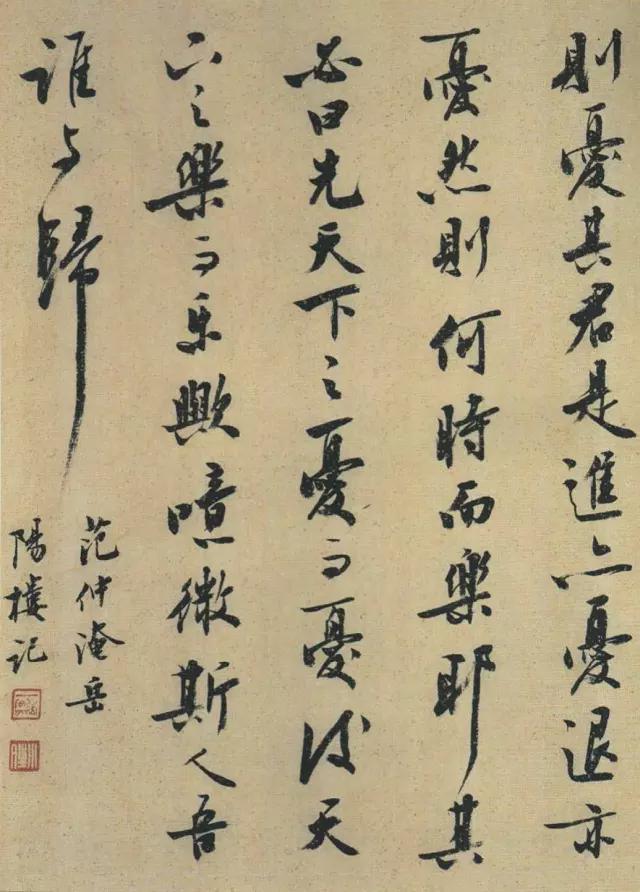 則憂其君是進亦憂退亦
憂然則何時而樂耶其
必曰先天下之憂而憂後天
下之樂而乐歟噫微斯人吾
誰与歸
范仲淹岳
陽樓記